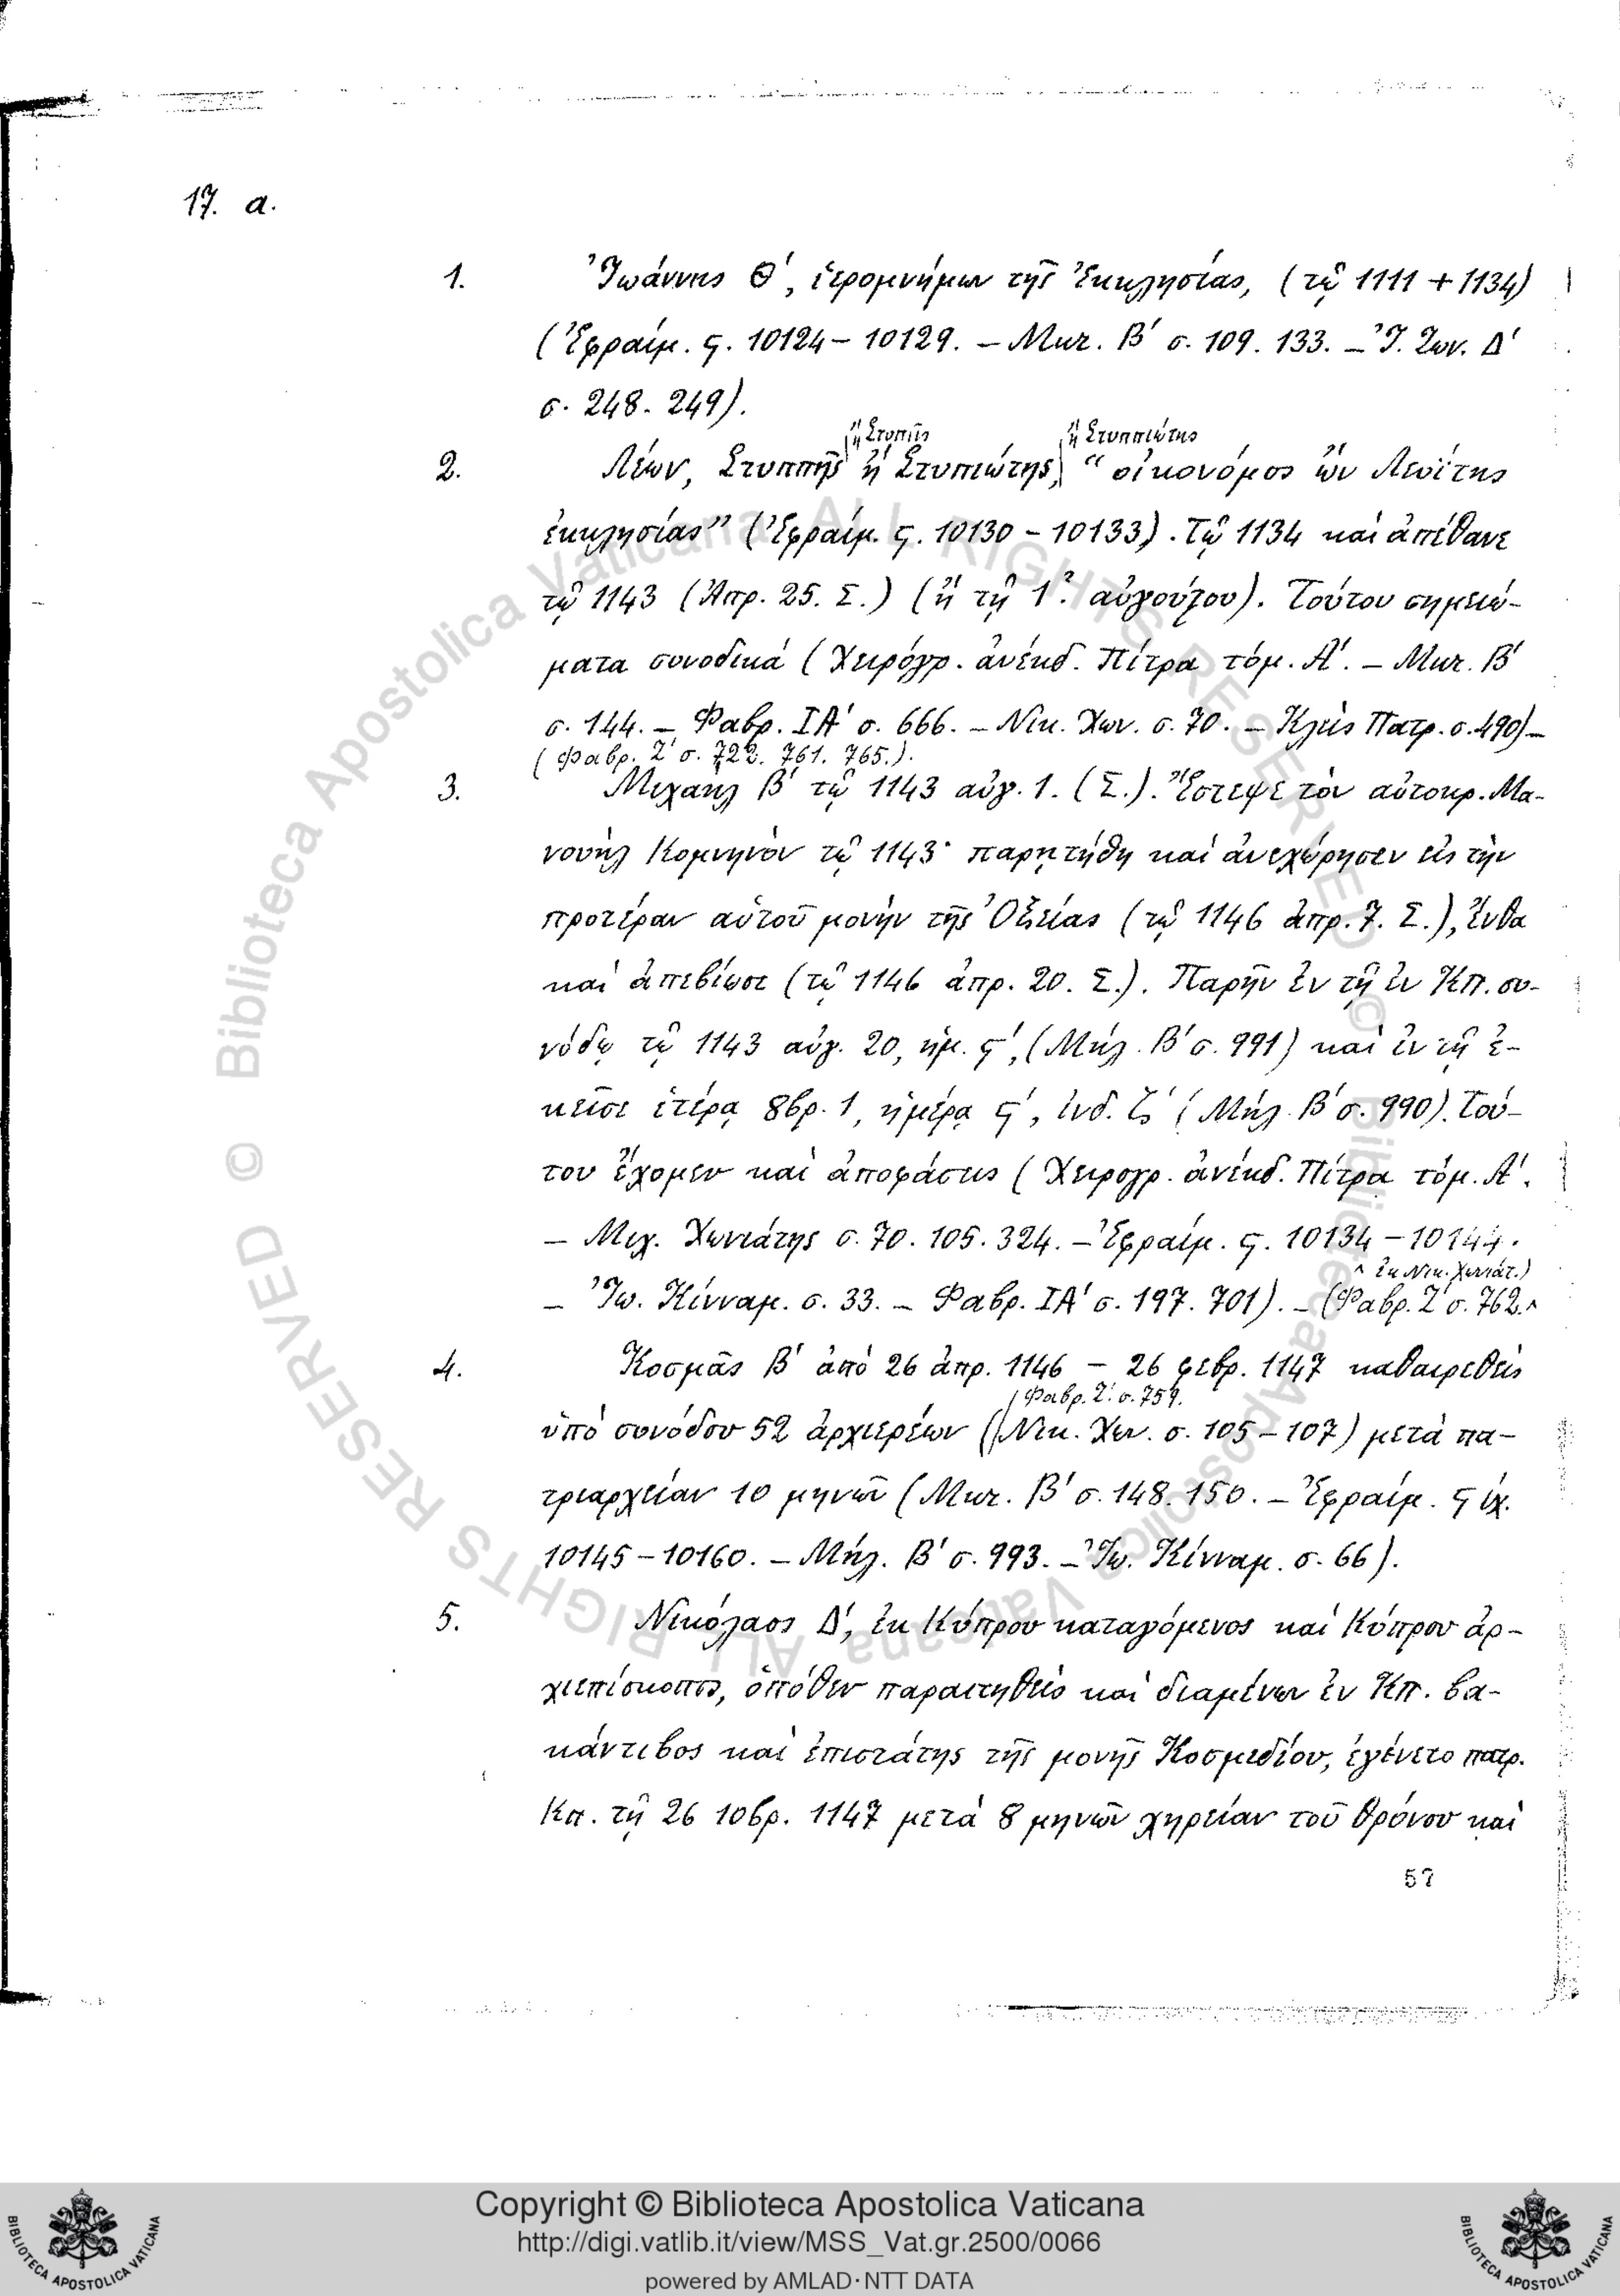 17. a.
1. Ἰωάννης Θ', ἱερομνήμων τῆς Ἐκκλησίας, (τῷ 1111 + 1134)
(Ἐφραίμ. ϛ. 10124 – 10129. – Μηλ. Β' σ. 109. 133. – Ἰ. Ζων. Δ'
σ. 248. 249).
ἢ Στυπῆς ἢ Στυππιώτης
2. Λέων, Στυππῆς ἢ Στυπιώτης, “οἰκονόμος ὢν Λευΐτης
ἐκκλησίας” (Ἐφραίμ. ϛ. 10130 – 10133). Τῷ 1134 καὶ ἀπέθανε
τῷ 1143 (Ἀπρ. 25. Σ.) (ἢ τῇ 1ῃ. αὐγούςου). Τούτου σημειώ-
ματα συνοδικά (Χειρόγρ. ἀνέκδ. Πίτρα τόμ. Α'. – Μελ. Β'
σ. 144. – Φαβρ. ΙΑ' σ. 666. – Νικ. Χων. σ. 70. – Κλεὶς Πατρ. σ. 490) –
(Φαβρ. Ζ' σ. 722. 761. 765.).
3. Μιχαὴλ Β' τῷ 1143 αὐγ. 1. (Σ.). Ἔστεψε τὸν αὐτοκρ. Μα-
νουὴλ Κομνηνὸν τῷ 1143· παρῃτήθη καὶ ἀνεχώρησεν εἰς τὴν
προτέραν αὑτοῦ μονὴν τῆς Ὀξείας (τῷ 1146 ἀπρ. 7. Σ.), ἔνθα
καὶ ἀπεβίωσε (τῷ 1146 ἀπρ. 20. Σ.). Παρῆν ἐν τῇ ἐν Κπ. συ-
νόδῳ τῷ 1143 αὐγ. 20, ἡμ. ϛ', (Μήλ. Β' σ. 991) καὶ ἐν τῇ ἐ-
κεῖσε ἑτέρᾳ 8βρ. 1, ἡμέρᾳ ϛ', ἰνδ. ζ' (Μήλ. Β' σ. 990). Τού-
του ἔχομεν καὶ ἀποφάσεις (Χειρογρ. ἀνέκδ. Πίτρα τόμ. Α'.
– Μιχ. Χωνιάτης σ. 70. 105. 324. – Ἐφραίμ. ϛ. 10134 – 10144.
^ ἐκ Νικ. Χωνιάτ.)
– Ἰω. Κίνναμ. σ. 33. – Φαβρ. ΙΑ' σ. 197. 701). – (Φαβρ. Ζ' σ. 762.^
4. Κοσμᾶς Β' ἀπὸ 26 ἀπρ. 1146 – 26 φεβρ. 1147 καθαιρεθεὶς
(Φαβρ. Ζ'. σ. 759.
ὑπὸ συνόδου 52 ἀρχιερέων (Νικ. Χων. σ. 105 – 107) μετὰ πα-
τριαρχείαν 10 μηνῶν (Μελ. Β' σ. 148. 150. – Ἐφραίμ. ϛίχ.
10145 – 10160. – Μήλ. Β' σ. 993. – Ἰω. Κίνναμ. σ. 66).
5. Νικόλαος Δ', ἐκ Κύπρου καταγόμενος καὶ Κύπρου ἀρ-
χιεπίσκοπος, ὁπόθεν παραιτηθεὶς καὶ διαμένων ἐν Κπ. βα-
κάντιβος καὶ ἐπιστάτης τῆς μονῆς Κοσμιδίου, ἐγένετο πατρ.
Κπ. τῇ 26 10βρ. 1147 μετὰ 8 μηνῶν χηρείαν τοῦ θρόνου καὶ
57
© Biblioteca Apostolica Vaticana ALL RIGHTS RESERVED © Biblioteca Apostolica Vaticana ALL RIGHTS RESERVED
Copyright © Biblioteca Apostolica Vaticana
http://digi.vatlib.it/view/MSS_Vat.gr.2500/0066
powered by AMLAD·NTT DATA
BIBLIOTECA APOSTOLICA VATICANA
BIBLIOTECA APOSTOLICA VATICANA